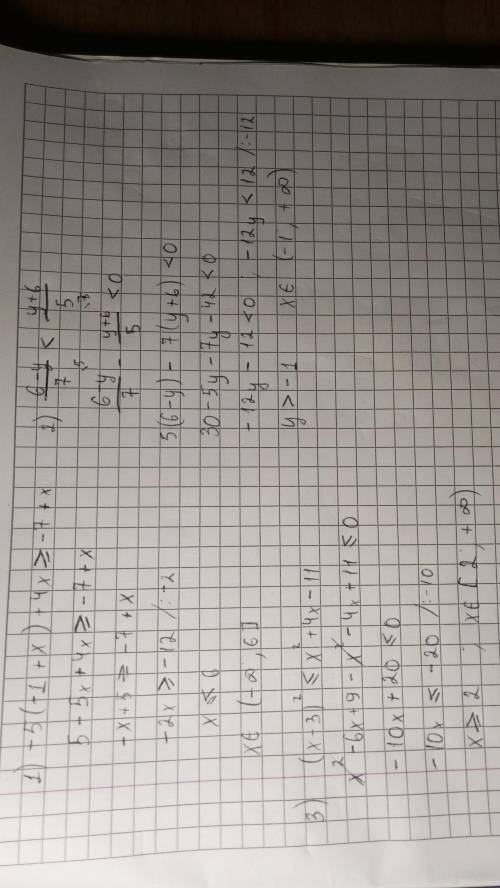 1) -5(-1+x)+4x ≥ -7+x
5-5x+4x ≥ -7+x
-x+5 ≥ -7+x
-2x ≥ -12 /:-2
x ≤ 6
x∈ (-∞, 6]
2) (6-y)/7 < (y+6)/5
(6-y)/7 ·5 - (y+6)/5 ·7 < 0
5(6-y) - 7(y+6) < 0
30-5y-7y-42 < 0
-12y-12 < 0 ; -12y < 12 /:-12
y > -1 x∈ (-1, +∞)
3) (x-3)² ≤ x²+4x-11
x²-6x+9-x²-4x+11 ≤ 0
-10x+20 ≤ 0
-10x ≤ -20 /:-10
x ≥ 2 ; x∈ [2, +∞)